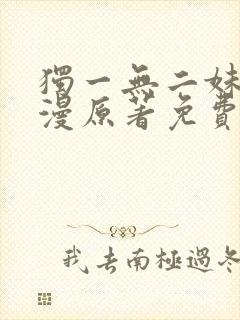 獨一無二妹
漫原著免費
我去南極過冬